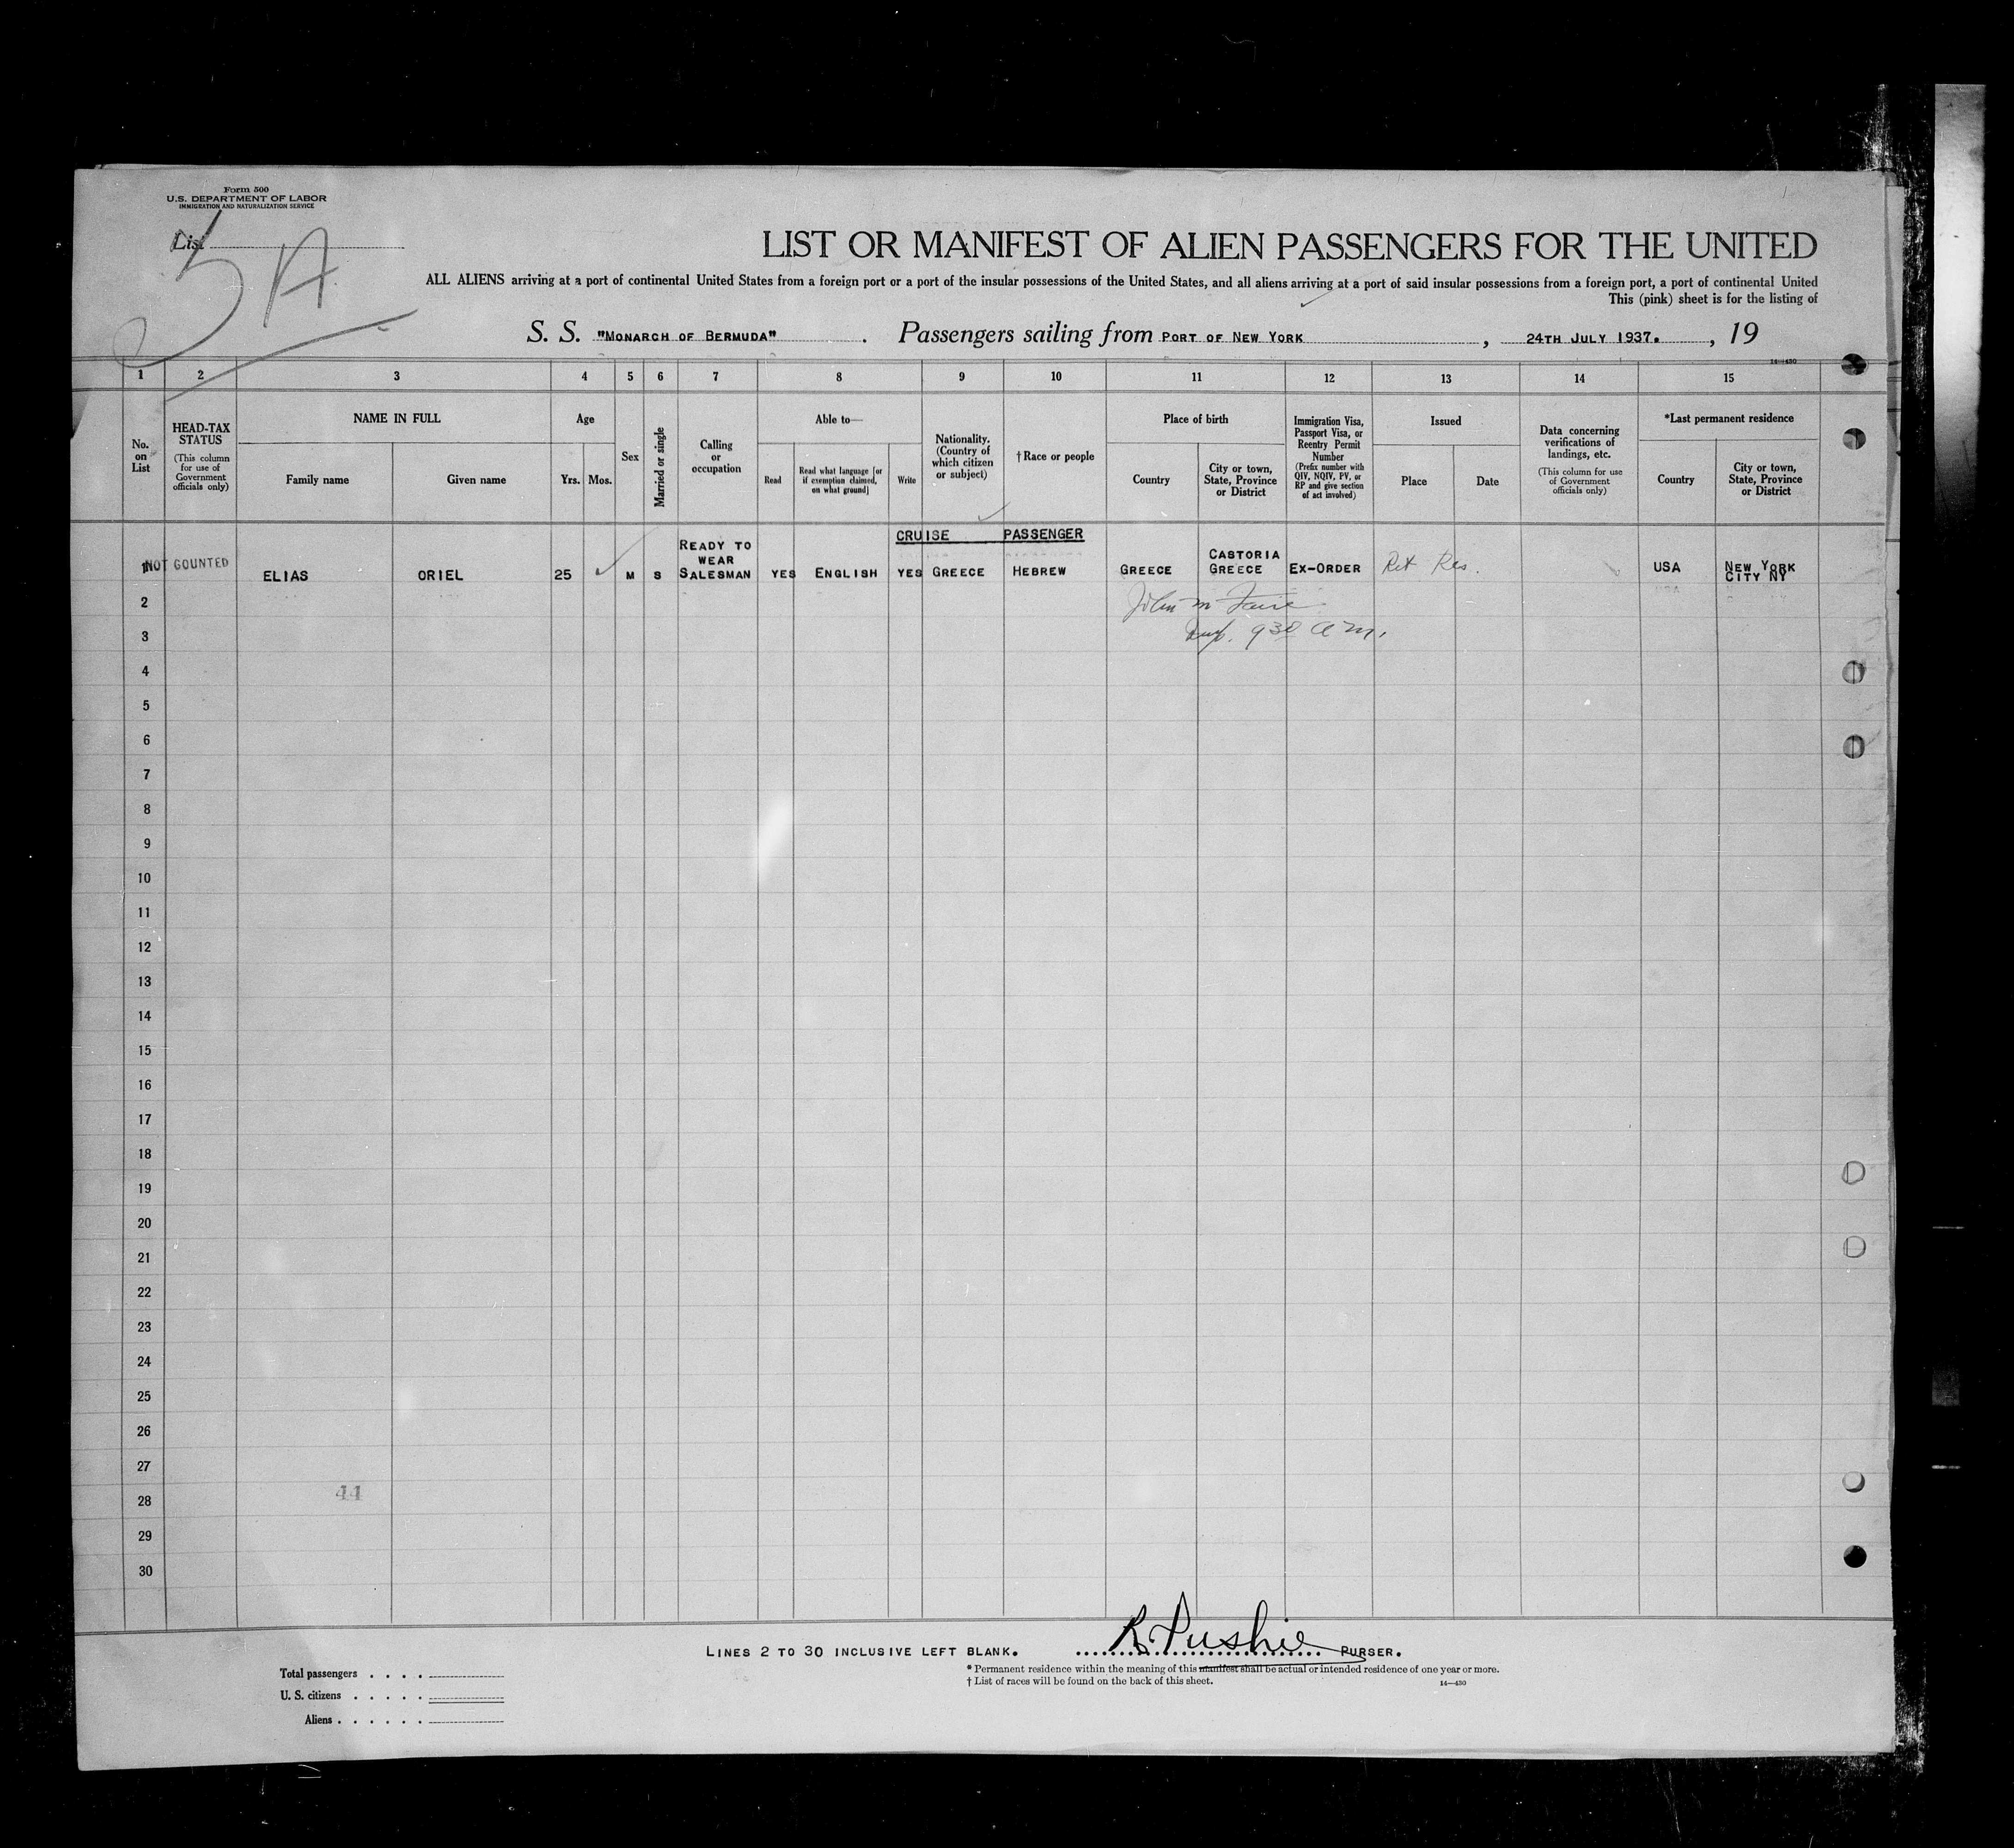 Form 500
U.S. DEPARTMENT OF LABOR
IMMIGRATION AND NATURALIZATION SERVICE
List
5A
LIST OR MANIFEST OF ALIEN PASSENGERS FOR THE UNITED
ALL ALIENS arriving at a port of continental United States from a foreign port or a port of the insular possessions of the United States, and all aliens arriving at a port of said insular possessions from a foreign port, a port of continental United
This (pink) sheet is for the listing of
S. S. "MONARCH OF BERMUDA". Passengers sailing from PORT OF NEW YORK, 24TH JULY 1937., 19
14—430
1 2 3 4 5 6 7 8 9 10 11 12 13 14 15
No. on List
HEAD-TAX STATUS (This column for use of Government officials only)
NAME IN FULL
Family name
Given name
Age
Yrs. Mos.
Sex
Married or single
Calling or occupation
Able to—
Read
Read what language [or if exemption claimed, on what ground]
Write
Nationality. (Country of which citizen or subject)
†Race or people
Place of birth
Country
City or town, State, Province or District
Immigration Visa, Passport Visa, or Reentry Permit Number (Prefix number with QIV, NQIV, PV, or RP and give section of act involved)
Issued
Place
Date
Data concerning verifications of landings, etc. (This column for use of Government officials only)
*Last permanent residence
Country
City or town, State, Province or District
CRUISE PASSENGER
1 NOT COUNTED ELIAS ORIEL 25 M S READY TO WEAR SALESMAN YES ENGLISH YES GREECE HEBREW GREECE CASTORIA GREECE EX-ORDER Ret Res. USA NEW YORK CITY NY
2 John M
3 930 a m.
4
5
6
7
8
9
10
11
12
13
14
15
16
17
18
19
20
21
22
23
24
25
26
27
28 44
29
30
LINES 2 TO 30 INCLUSIVE LEFT BLANK. R. Pushie PURSER.
Total passengers
U. S. citizens
Aliens
* Permanent residence within the meaning of this manifest shall be actual or intended residence of one year or more.
† List of races will be found on the back of this sheet.
14—430